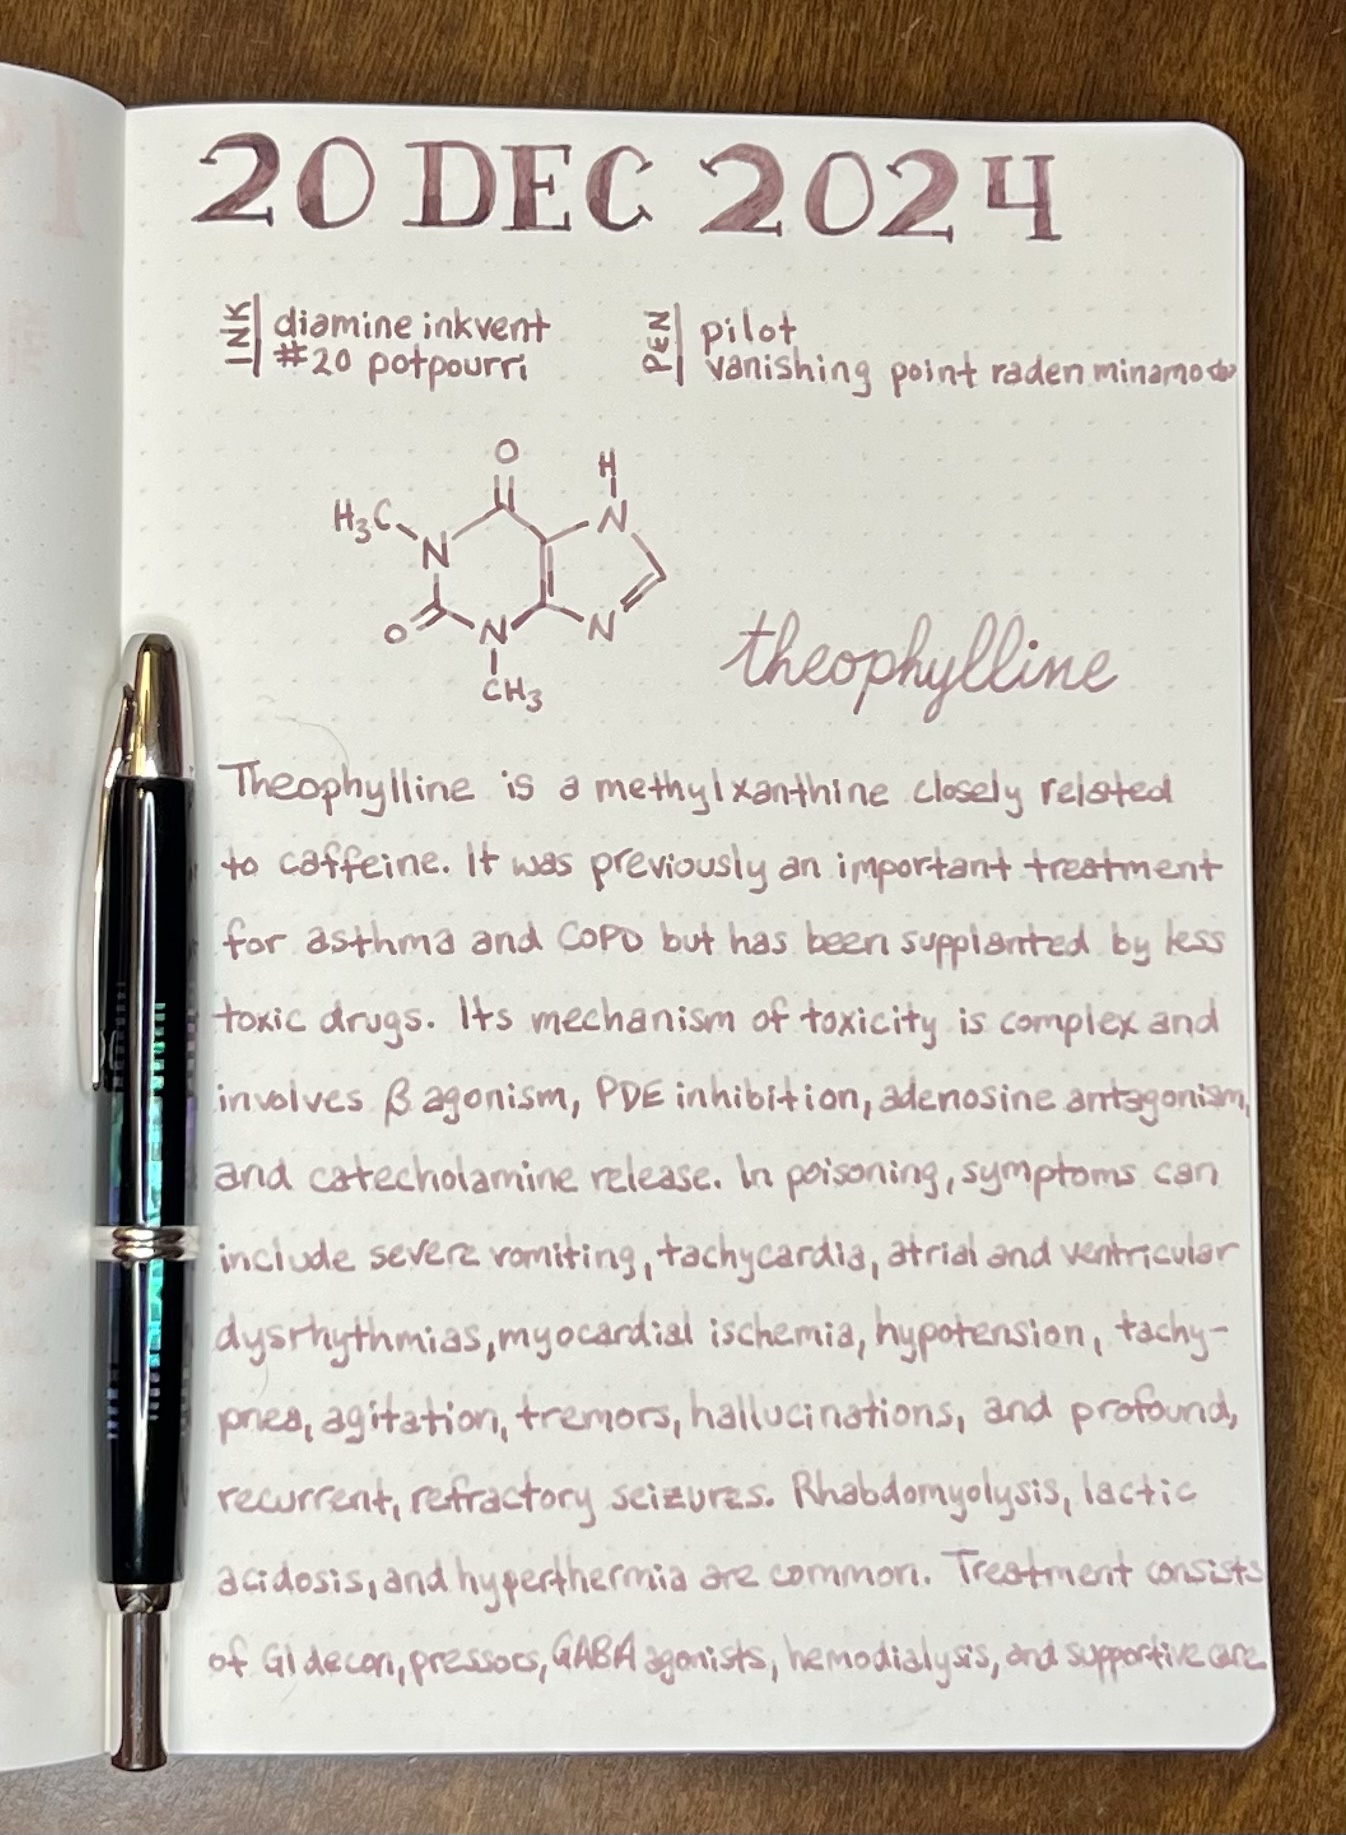 20 DEC 2024
INK
diamine inkvent
#20 potpourri
PEN
pilot
vanishing point raden minamo
O
H
H3C
N
N
O
N
N
CH3
theophylline
Theophylline is a methylxanthine closely related
to caffeine. It was previously an important treatment
for asthma and COPD but has been supplanted by less
toxic drugs. Its mechanism of toxicity is complex and
involves β agonism, PDE inhibition, adenosine antagonism,
and catecholamine release. In poisoning, symptoms can
include severe vomiting, tachycardia, atrial and ventricular
dysrhythmias, myocardial ischemia, hypotension, tachy-
pnea, agitation, tremors, hallucinations, and profound,
recurrent, refractory seizures. Rhabdomyolysis, lactic
acidosis, and hyperthermia are common. Treatment consists
of GI decon, pressors, GABA agonists, hemodialysis, and supportive care